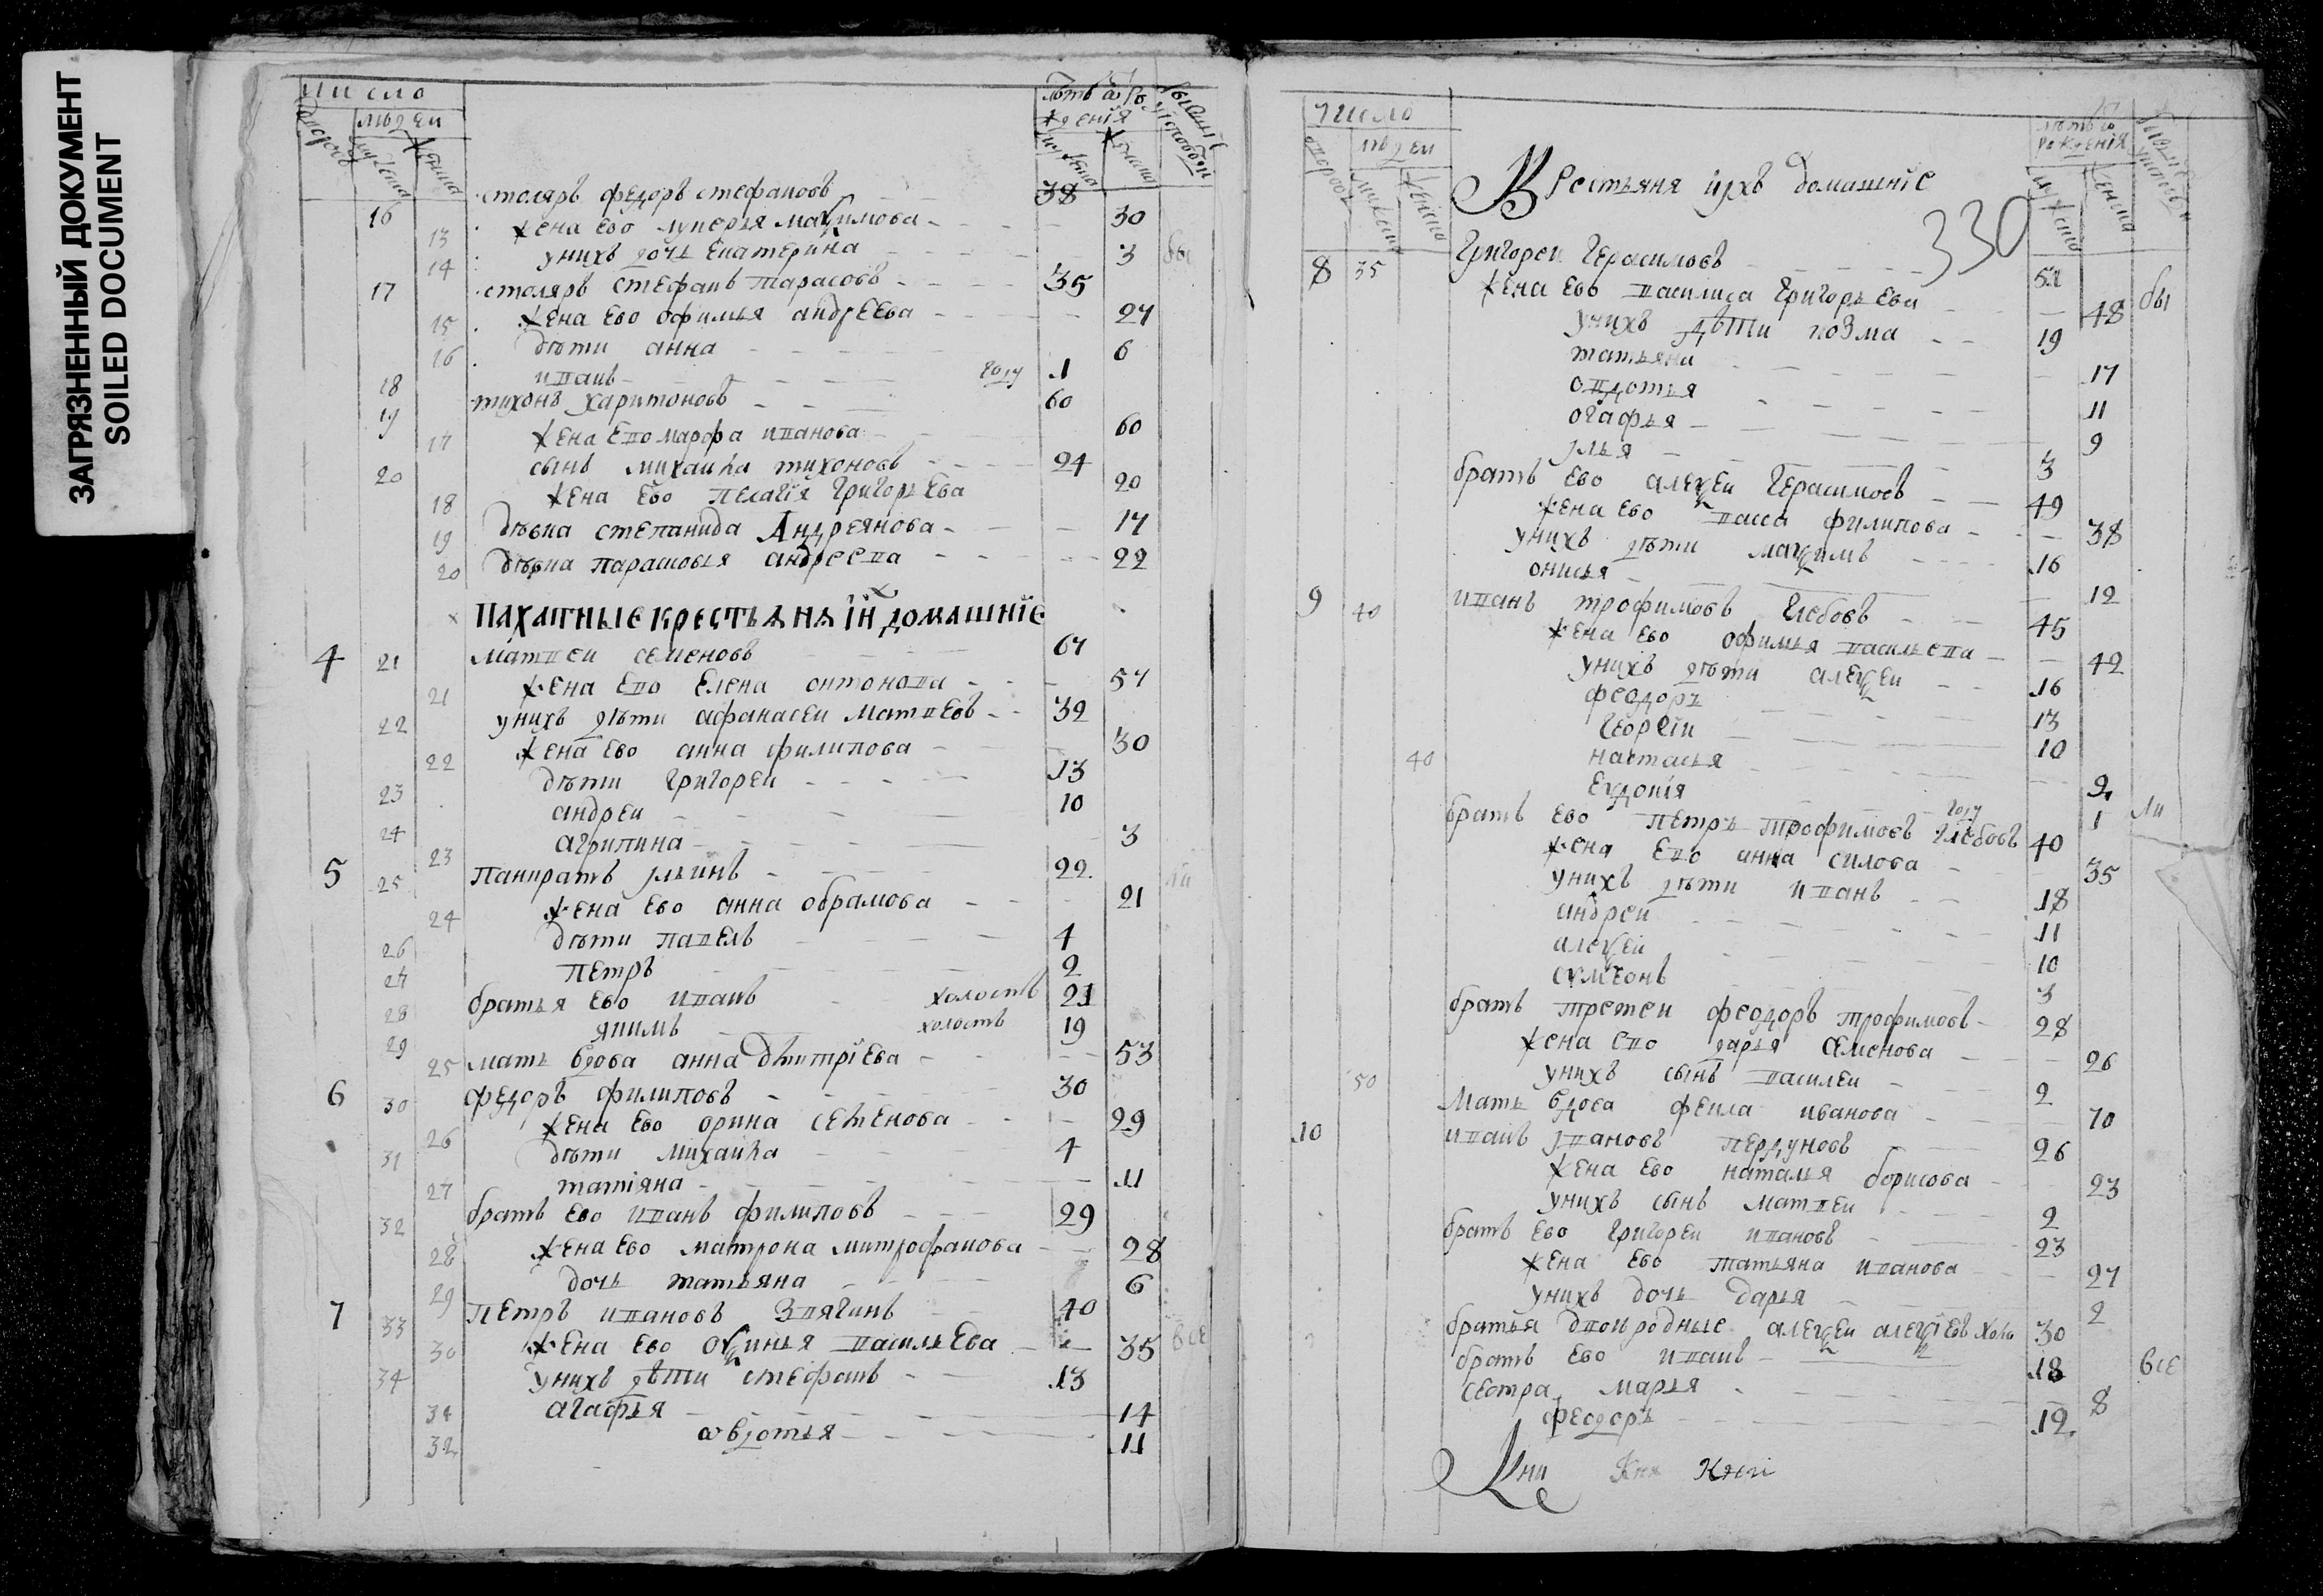 ЗАГРЯЗНЕННЫЙ ДОКУМЕНТ
SOILED DOCUMENT
число
людей
столяръ федоръ стефановъ 38
16 жена ево лукерья маѯимова 30
13 унихъ дочь екатерина 3 бы
14
17 столяръ стефанъ тарасовъ 35
15 жена ево офимья андреева 27
16 дѣти анна 6
иванъ году 1
18 тихонъ харитоновъ 60
19
17 жена ево марфа иванова 60
сынъ михаила тихоновъ 24
20
18 жена ево пелагїя григорьева 20
19 дѣвка степанида Андреянова 17
20 дѣвка парасковья андреева 22
пахатные крестьяня їй домашнїе
4 21 матвеи семеновъ 67
21 жена ево елена онтонова 57
22 унихъ дѣти афанасеи матвеевъ 32
22 жена ево анна филипова 30
23 дѣти григореи 13
24 андреи 10
23 агрипина 3
5 25 панкратъ ильинъ 22 ли
24 жена ево анна обрамова 21
26 дѣти павелъ 4
27 петръ 2
28 братья ево иванъ холостъ 21
29 якимъ холостъ 19
25 мать вдова анна дмитрїева 53
6 30 федоръ филиповъ 30
26 жена ево орина семенова 29
31 дѣти михаила 4
27 татіяна 11
32 братъ ево иванъ филиповъ 29
28 жена ево матрона митрофанова 28
29 дочь татьяна 6
7 33 петръ ивановъ звягинъ 40
30 жена ево оѯинья васильева 35 все
34 унихъ дѣти стефанъ 13
31 агафья 14
32 овдотья 11
число
людей
Крестьяня ихъ домашнїе
330
8 35 григореи герасимовъ 52
жена ево василиса григорьева 48 бы
унихъ дѣти козма 19
татьяна 17
овдотья 11
огафья 9
илья 3
братъ ево алеѯеи герасимовъ 49
жена ево васса филипова 38
унихъ дѣти маѯимъ 16
онисья 12
9 40 иванъ трофимовъ глебовъ 45
жена ево офимья васильева 42
унихъ дѣти алеѯеи 16
феодоръ 13
георгїи 10
40 настасья 9
евдокія году 1 ли
братъ ево петръ трофимовъ глебовъ 40
жена ево анна силова 35
унихъ дѣти иванъ 18
андреи 11
алеѯеи 10
симеонъ 3
братъ третеи феодоръ трофимовъ 28
жена ево дарья семенова 26
50 унихъ сынъ василеи 2
мать вдова фекла иванова 70
10 иванъ ивановъ пердуновъ 26
жена ево наталья борисова 23
унихъ сынъ матвеи 2
братъ ево григореи ивановъ 23
жена ево татьяна иванова 27
унихъ дочь дарья 2
братья двоюродные алеѯеи алеѯіевъ холо 30
братъ ево иванъ 18 все
сестра марья 8
феодоръ 12
Кни Кня Княи